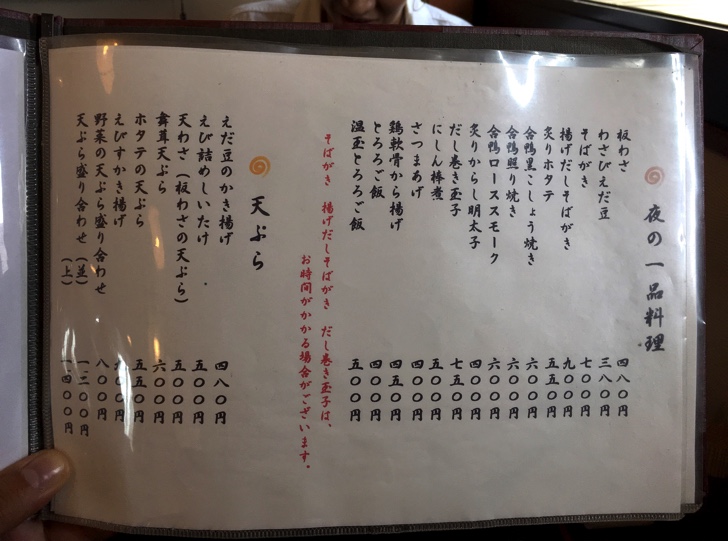 夜の一品料理
板わさ 四八〇円
わさびえだ豆 三八〇円
そばがき 七〇〇円
揚げだしそばがき 九〇〇円
炙りホタテ 五五〇円
合鴨黒こしょう焼き 六〇〇円
合鴨照り焼き 六〇〇円
合鴨ローススモーク 六〇〇円
炙りからし明太子 四〇〇円
だし巻き玉子 七五〇円
にしん棒煮 五〇〇円
さつまあげ 四〇〇円
鶏軟骨から揚げ 四五〇円
とろろご飯 四〇〇円
温玉とろろご飯 五〇〇円
そばがき 揚げだしそばがき だし巻き玉子は、
お時間がかかる場合がございます。
天ぷら
えだ豆のかき揚げ 四八〇円
えび詰めしいたけ 五〇〇円
天わさ（板わさの天ぷら） 五〇〇円
舞茸天ぷら 六〇〇円
ホタテの天ぷら 五五〇円
えびすかき揚げ
野菜の天ぷら盛り合わせ 八〇〇円
天ぷら盛り合わせ（並） 一三〇〇円
（上）